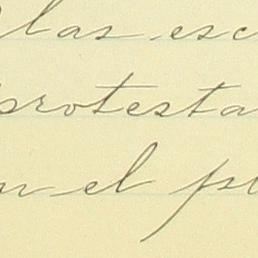 las esc
protesta
n el p